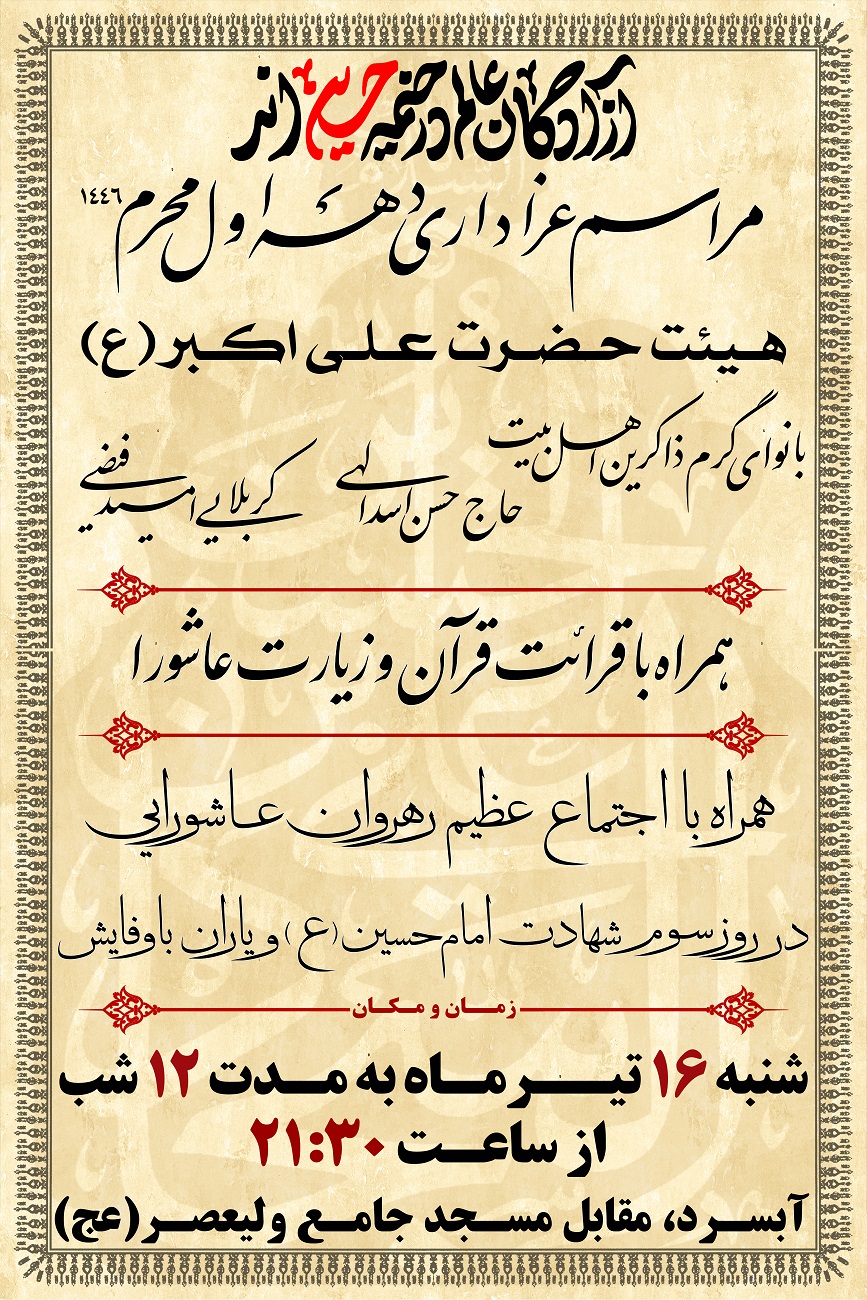 آزادگان عالم در خیمه حسینی اند
مراسم عزاداری دههٔ اول محرم ١٤٤٦
هیئت حضرت علی اکبر (ع)
با نوای گرم ذاکرین اهل بیت
حاج حسن اسدالهی کربلایی امید فیضی
همراه با قرائت قرآن و زیارت عاشورا
همراه با اجتماع عظیم رهروان عاشورایی
در روز سوم شهادت امام حسین (ع) و یاران باوفایش
زمان و مکان
شنبه ۱۶ تیر ماه به مدت ۱۲ شب
از ساعت ۲۱:۳۰
آبسرد، مقابل مسجد جامع ولیعصر (عج)